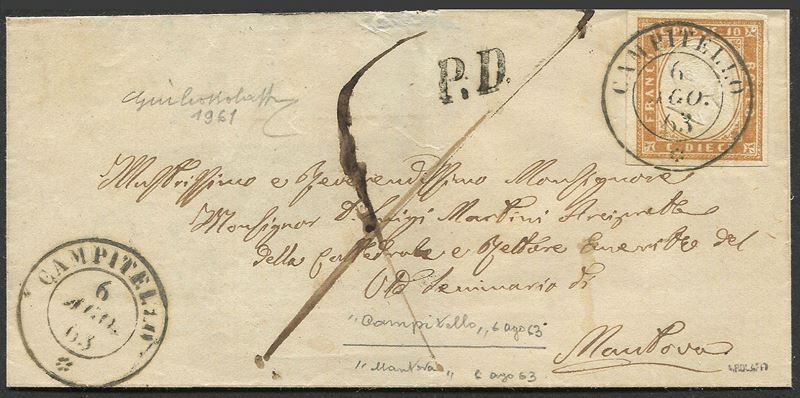 P.D.
FRANCO
C. DIECI
CAMPITELLO
6
AGO.
63
1961
Illustrissimo e Reverendissimo Monsignore
Monsignor D. Luigi Martini Arciprete
della Cattedrale e Rettore Emerito del
Seminario di
Mantova
CAMPITELLO
6
AGO.
63
"Campitello" 6 ago 63
"Mantova" 6 ago 63